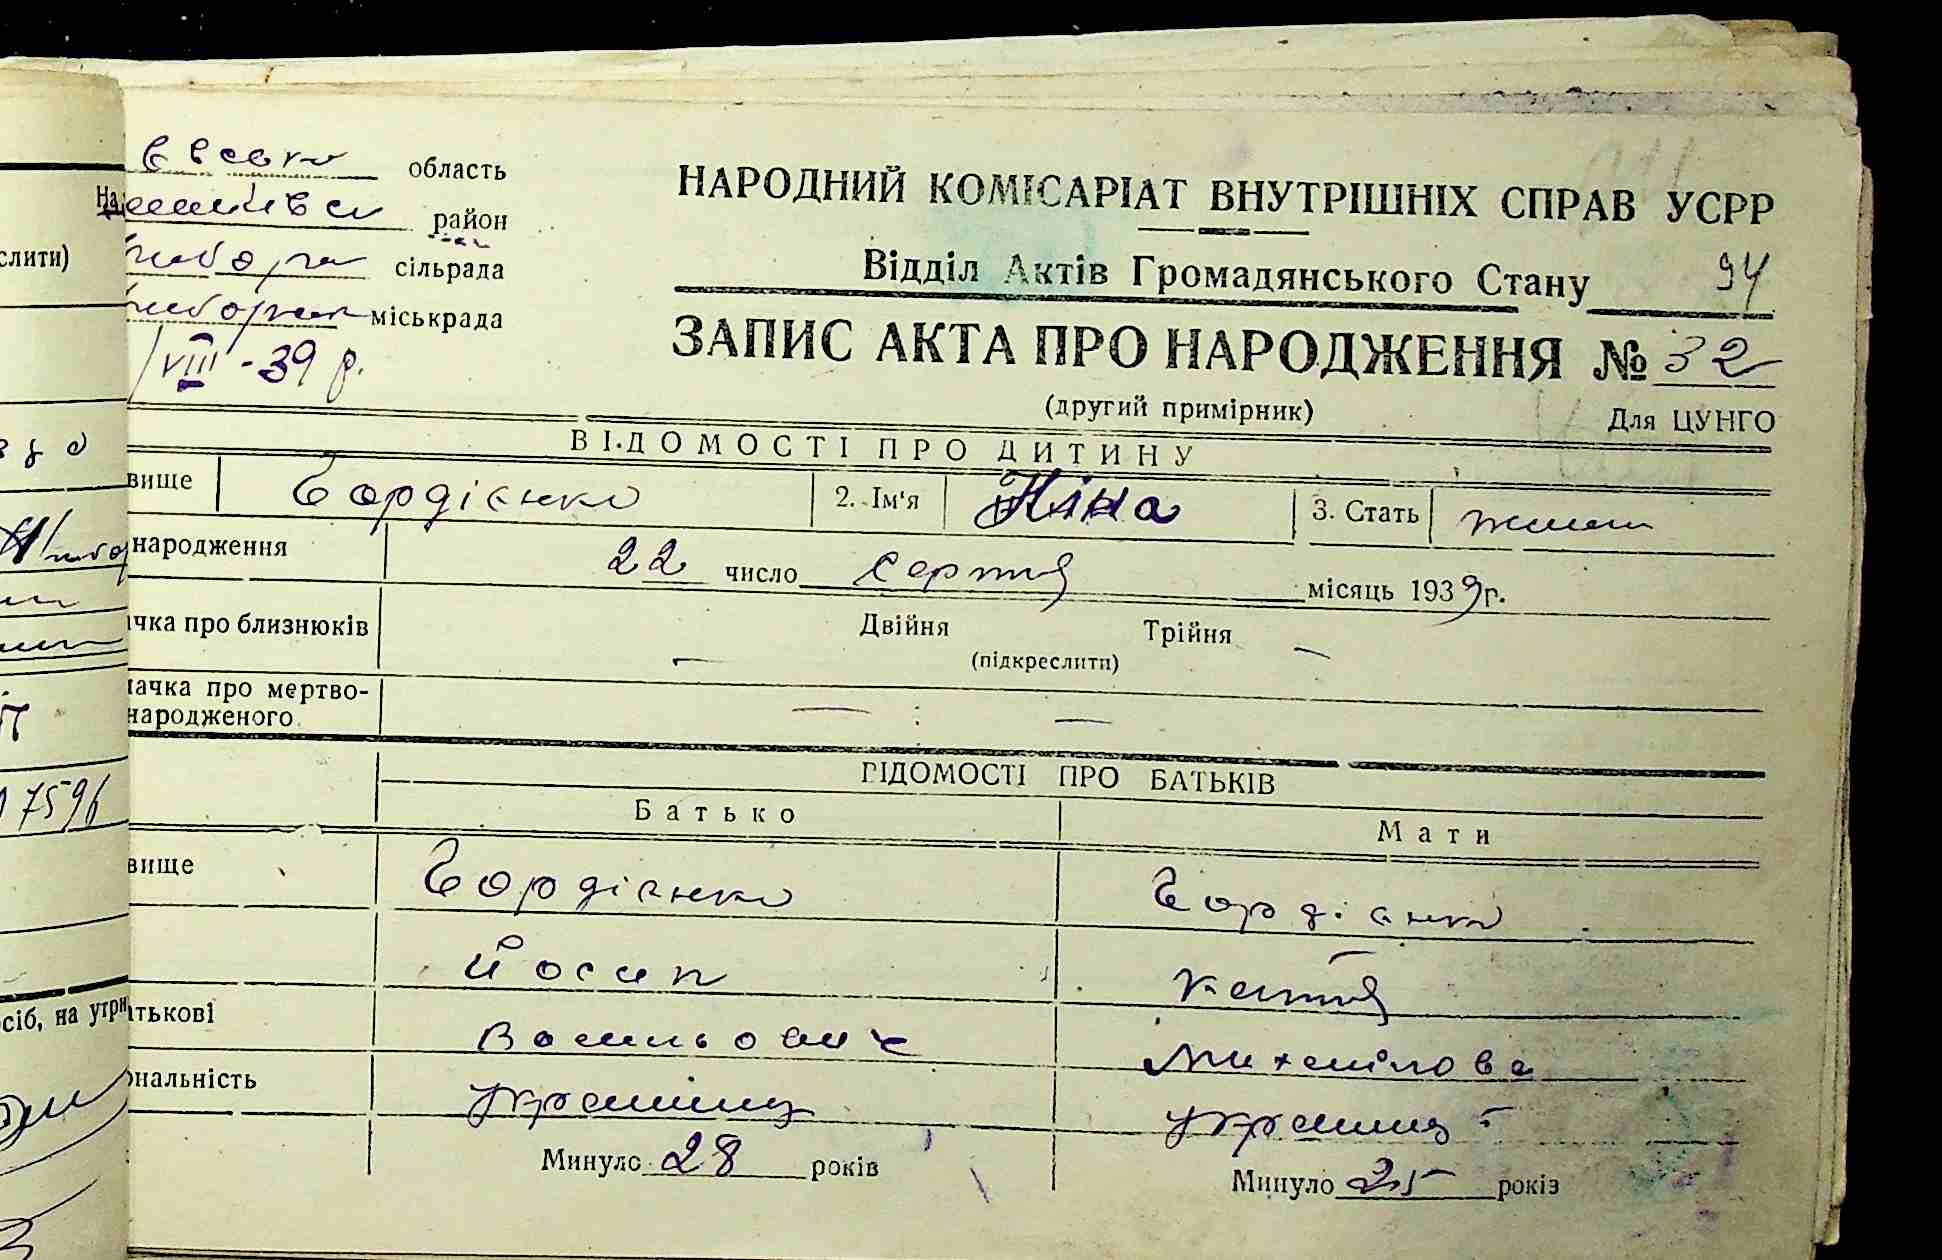 область
НАРОДНИЙ КОМІСАРІАТ ВНУТРІШНІХ СПРАВ УСРР
район
Відділ Актів Громадянського Стану 94
сільрада
міськрада
ЗАПИС АКТА ПРО НАРОДЖЕННЯ № 32
VIII - 39 р.
(другий примірник) Для ЦУНГО
ВІДОМОСТІ ПРО ДИТИНУ
вище Гордієнко 2. Ім'я Ніна 3. Стать
народження 22 число серпня місяць 1939 г.
чка про близнюків Двійня Трійня
(підкреслити)
ачка про мертво-
народженого
ВІДОМОСТІ ПРО БАТЬКІВ
Батько Мати
вище Гордієнко Гордієнко
Йосип Катя
атькові Васильович Михайлова
ональність українець українка
Минуло 28 років Минуло 25 років
слити)
7596
осіб, на утри